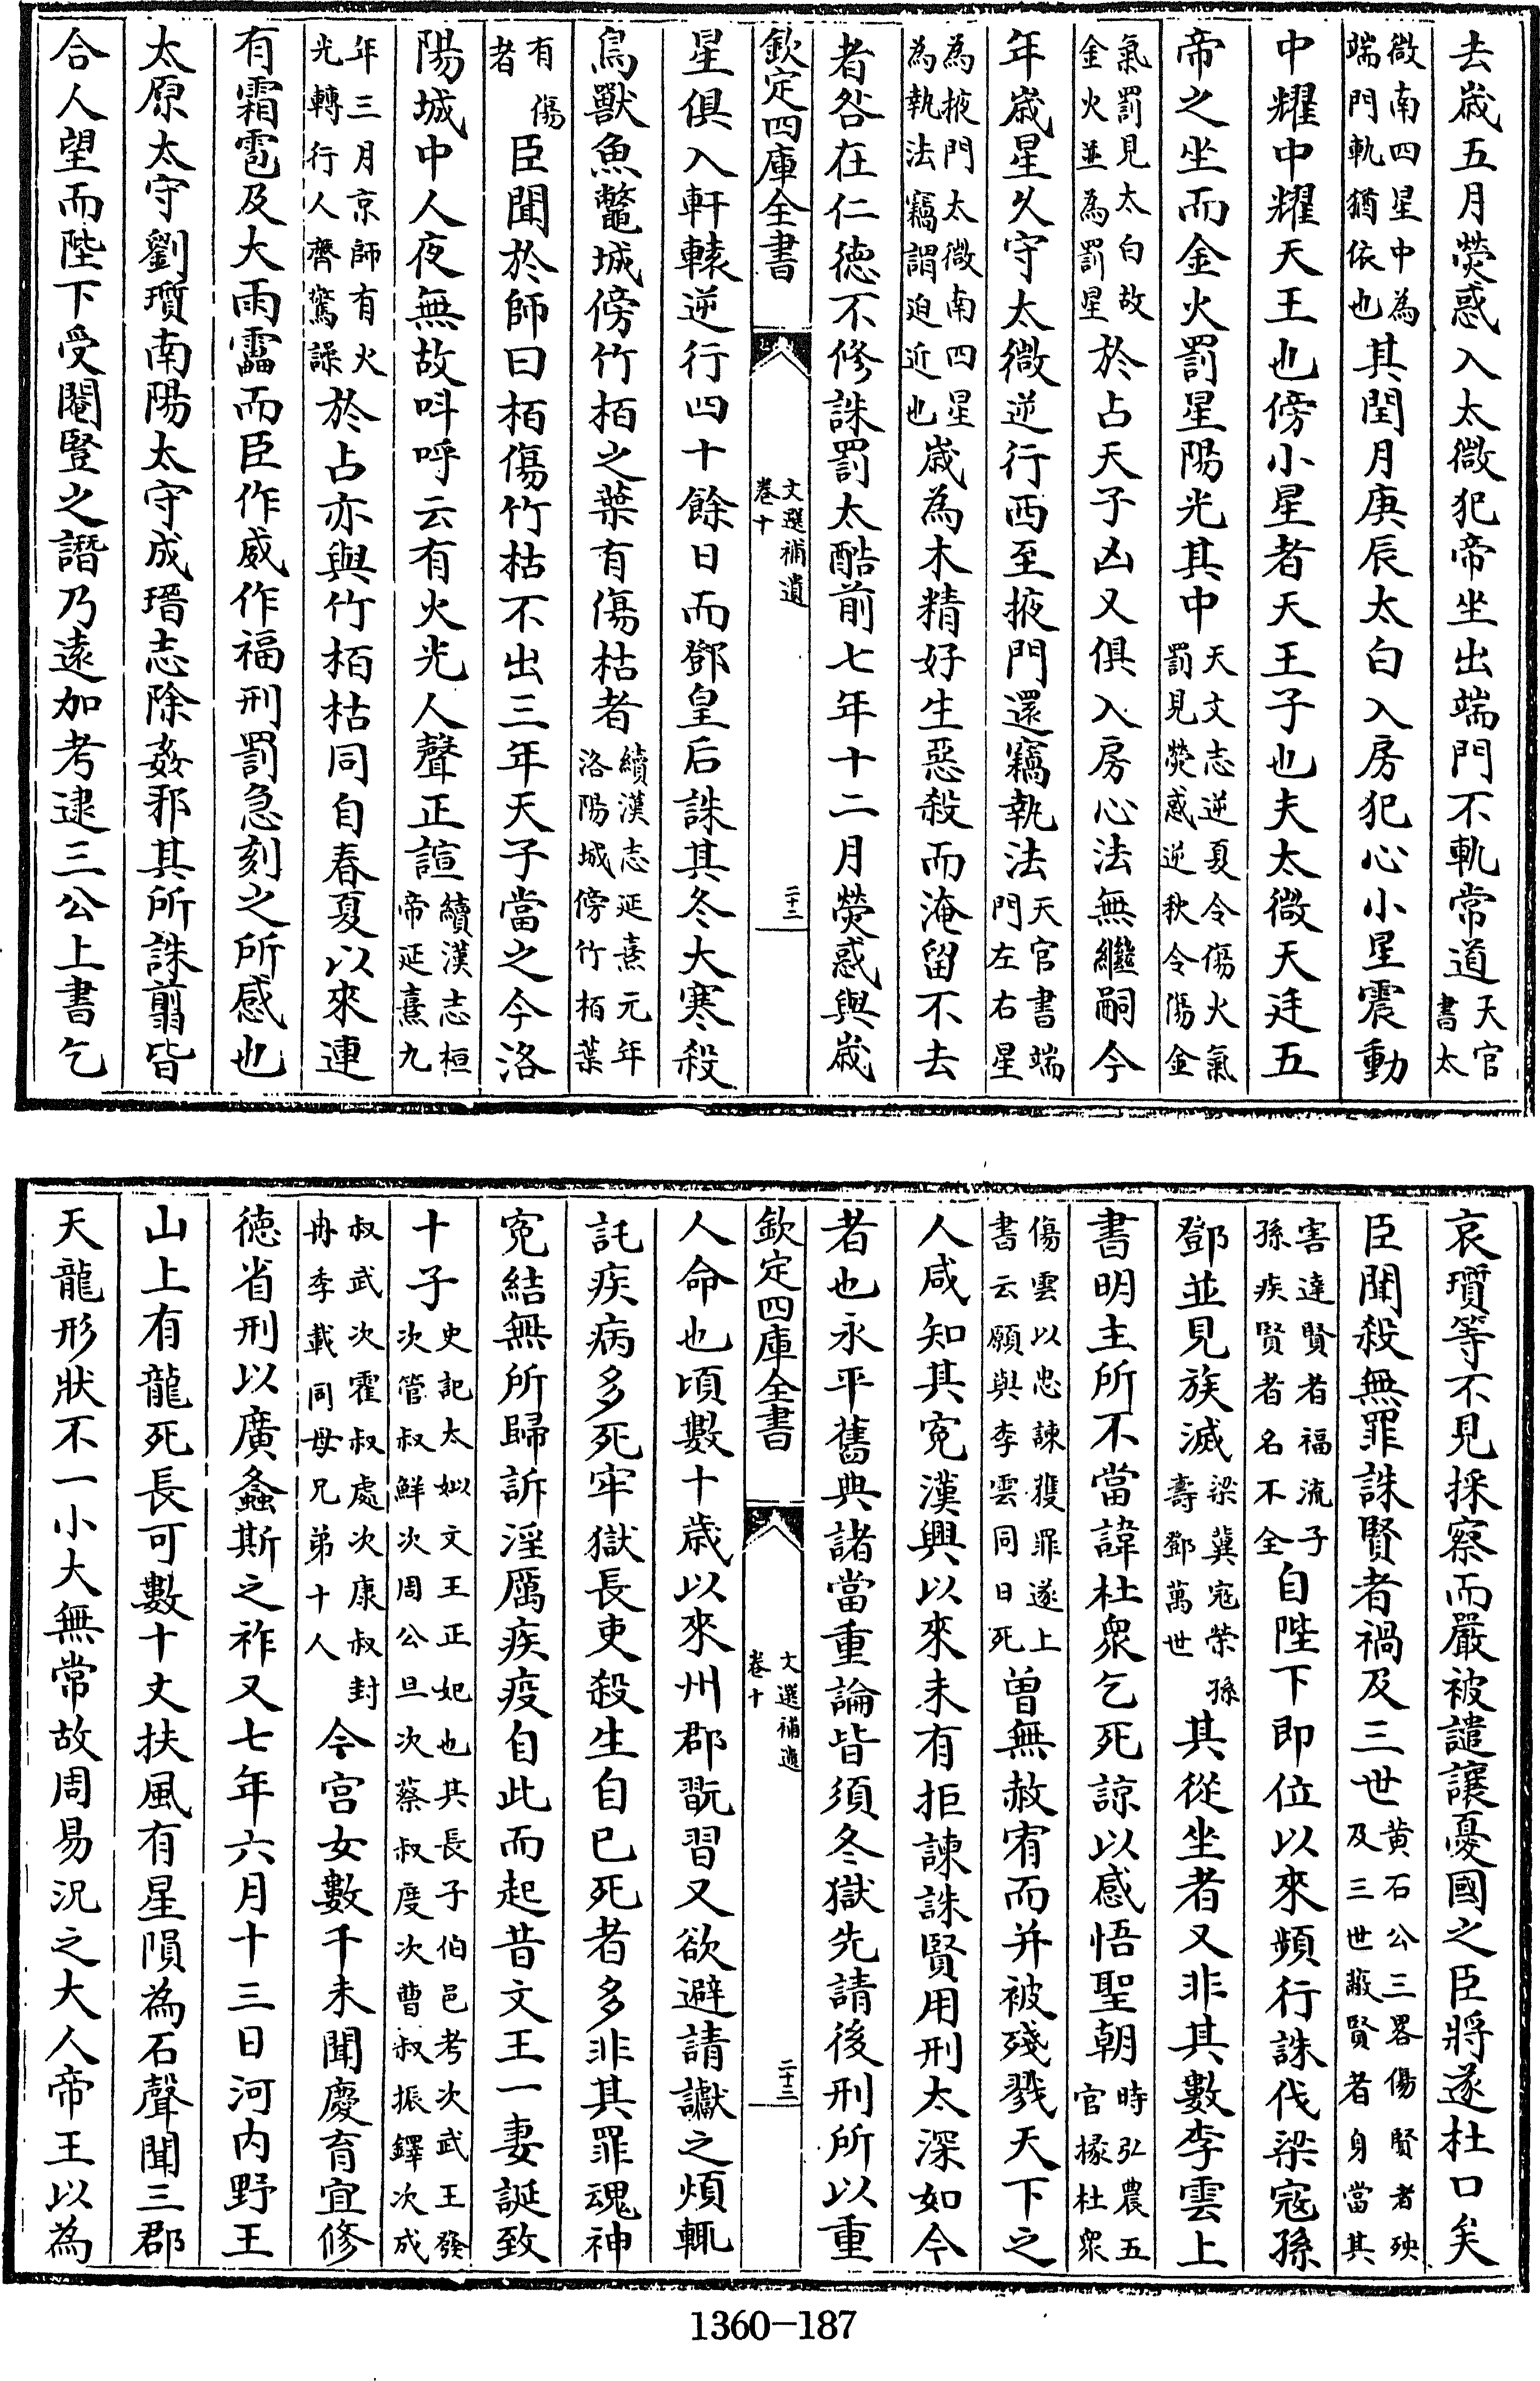 去歲五月熒惑入太微犯帝坐出端門不軌常道天官書太
微南四星中為端門軌猶依也其閏月庚辰太白入房犯心小星震動
中耀中耀天王也傍小星者天王子也夫太微天廷五
帝之坐而金火罰星陽光其中天文志逆夏令傷火氣罰見熒惑逆秋令傷金
氣罰見太白故金火並為罰星於占天子凶又俱入房心法無繼嗣今
年歲星久守太微逆行西至掖門還竊執法天官書端門左右星
為掖門太微南四星為執法竊謂迫近也歲為木精好生惡殺而淹留不去
者咎在仁德不修誅罰太酷前七年十二月熒惑與歲
欽定四庫全書
文選補遺
卷十
二十二
星俱入軒轅逆行四十餘日而鄧皇后誅其冬大寒殺
鳥獸魚鼈城傍竹栢之葉有傷枯者續漢志延熹元年洛陽城傍竹栢葉
有傷者臣聞於師曰栢傷竹枯不出三年天子當之今洛
陽城中人夜無故呌呼云有火光人聲正諠續漢志桓帝延熹九
年三月京師有火光轉行人齊驚譟於占亦與竹栢枯同自春夏以來連
有霜雹及大雨靁而臣作威作福刑罰急刻之所感也
太原太守劉瓆南陽太守成瑨志除姦邪其所誅翦皆
合人望而陛下受閹豎之譖乃遠加考逮三公上書乞
哀瓆等不見採察而嚴被譴讓憂國之臣將遂杜口矣
臣聞殺無罪誅賢者禍及三世黄石公三畧傷賢者殃及三世蔽賢者身當其
害達賢者福流子孫疾賢者名不全自陛下即位以來頻行誅伐梁寇孫
鄧並見族滅梁冀寇榮孫壽鄧萬世其從坐者又非其數李雲上
書明主所不當諱杜衆乞死諒以感悟聖朝時弘農五官掾杜衆
傷雲以忠諫獲罪遂上書云願與李雲同日死曽無赦宥而并被殘戮天下之
人咸知其寃漢興以來未有拒諫誅賢用刑太深如今
者也永平舊典諸當重論皆須冬獄先請後刑所以重
欽定四庫全書
文選補遺
卷十
二十三
人命也頃數十歲以來州郡翫習又欲避請讞之煩輒
託疾病多死牢獄長吏殺生自已死者多非其罪魂神
寃結無所歸訴淫厲疾疫自此而起昔文王一妻誕致
十子史記太姒文王正妃也其長子伯邑考次武王發次管叔鮮次周公旦次蔡叔度次曹叔振鐸次成
叔武次霍叔處次康叔封冉季載同母兄弟十人今宫女數千未聞慶育宜修
德省刑以廣螽斯之祚又七年六月十三日河内野王
山上有龍死長可數十丈扶風有星隕為石聲聞三郡
天龍形狀不一小大無常故周易況之大人帝王以為
1360—187